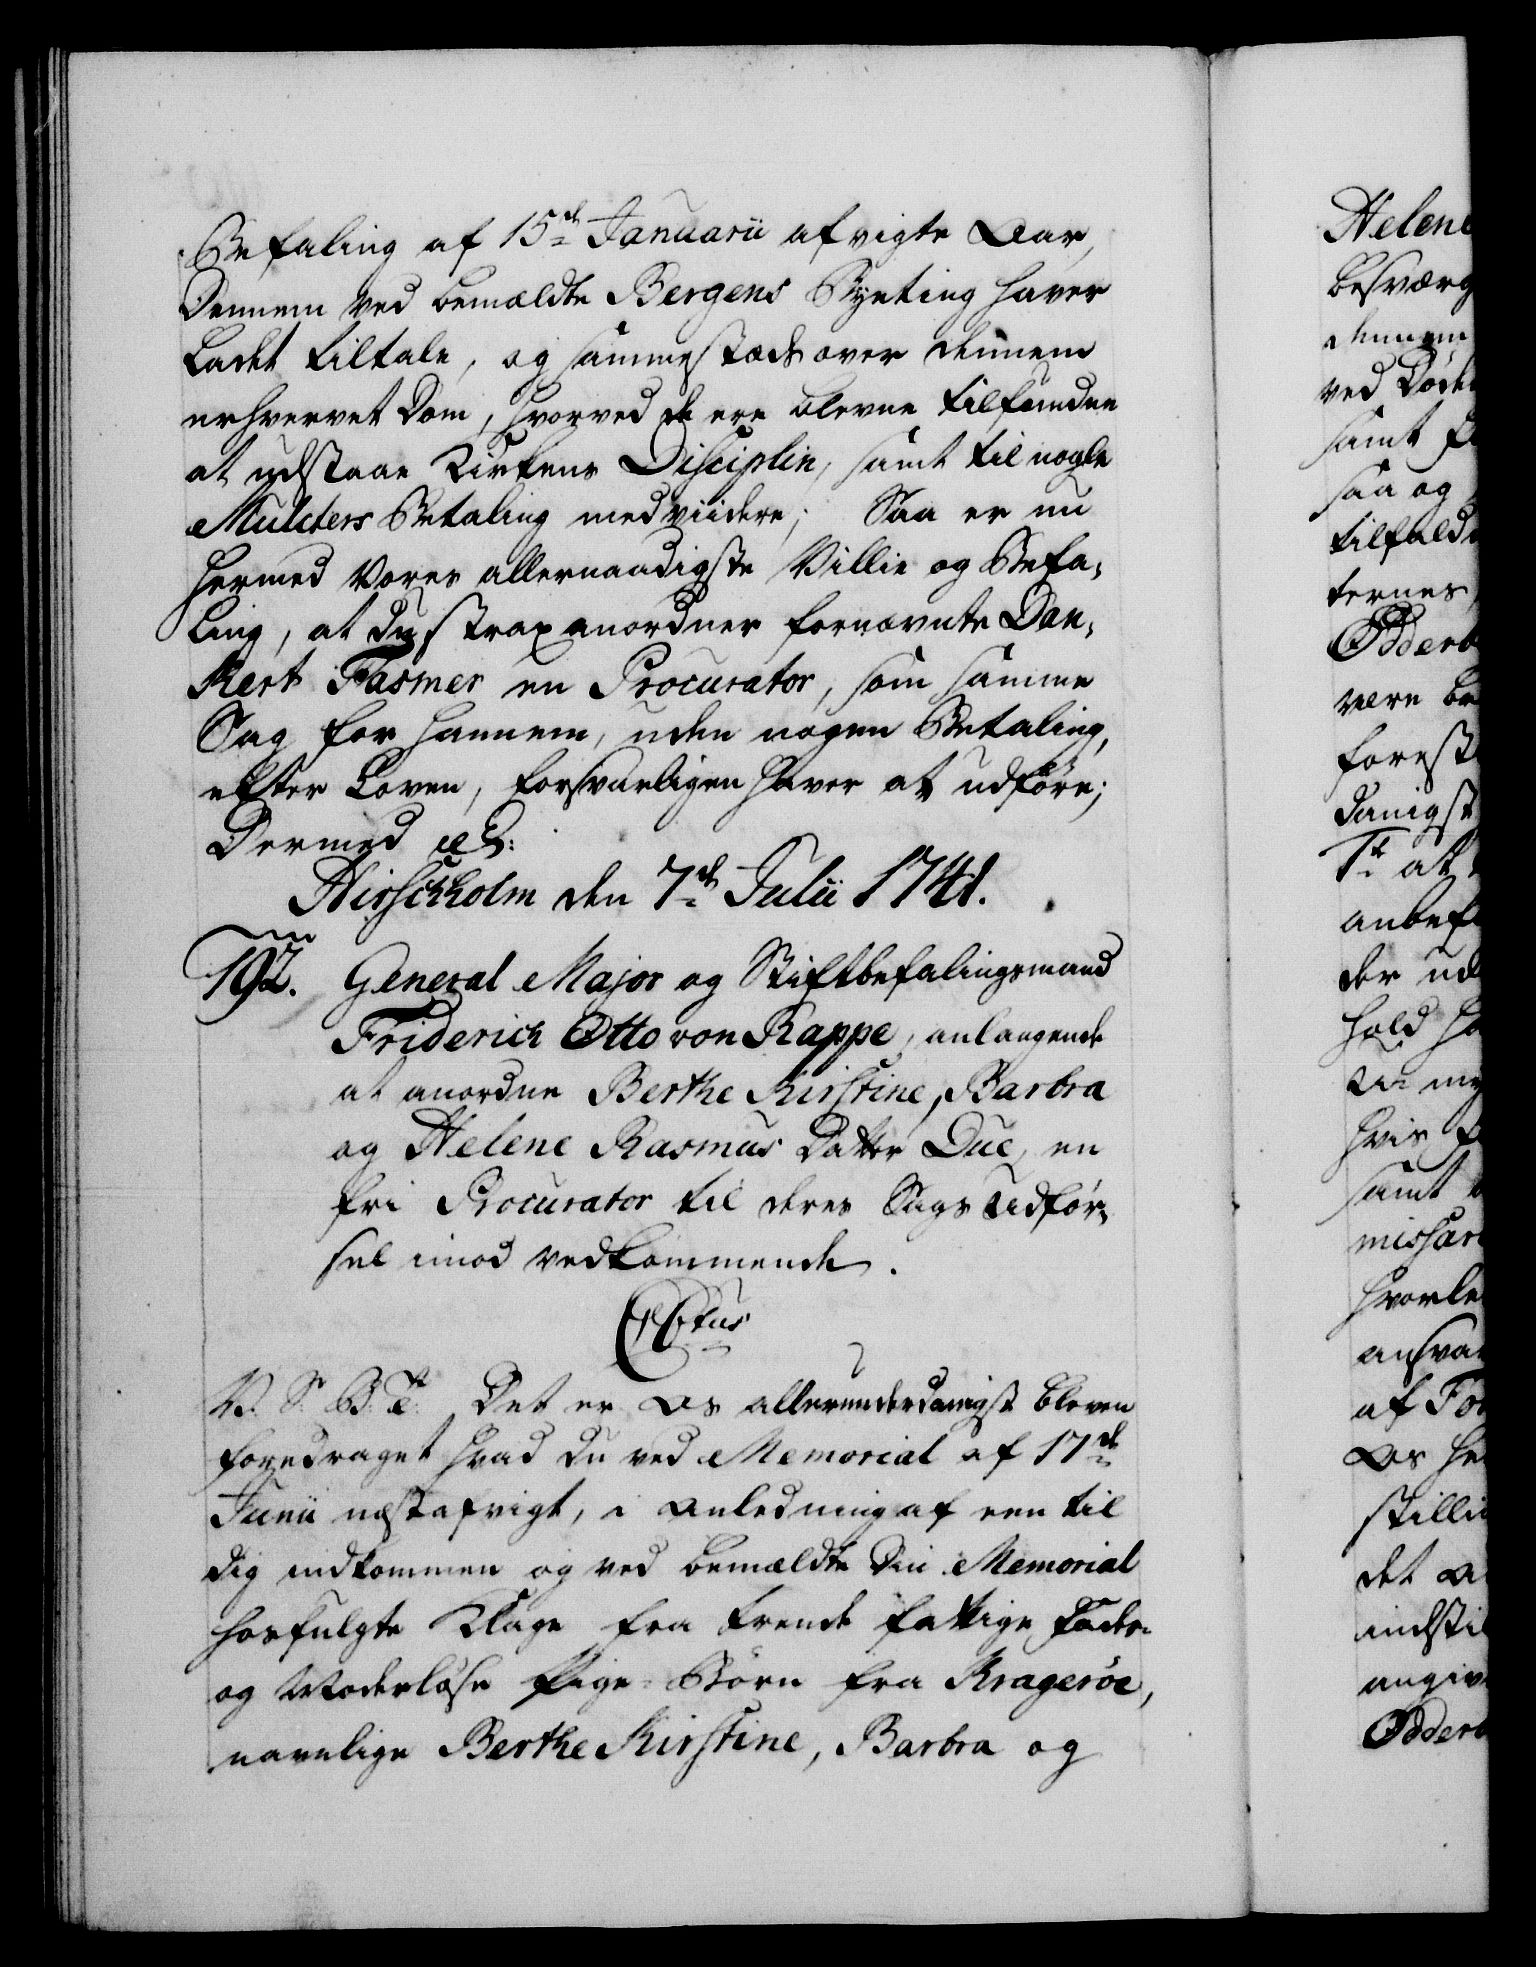 Befaling af 15de Januarii afvigte Aar,
Dennem ved bemældte Bergens Byeting haver
ladet tiltale, og sammestæds over dennem
erhvervet Dom, hvorved de ere blevne tilfunden
at udstaae Kirkens Disciplin, samt til nogle
Mulcters Betaling med viidere; Saa er nu
hermed Vores allernaadigste Villie og Befa-
ling, at du strax anordner fornævnte Dan-
kert Fasmer en Procurator, som samme
Sag for hannem, uden nogen Betaling,
efter Loven, forsvarligen haver at udføre;
Dermed etc:
Hirschholm den 7de Julii 1741.
192. General Major og Stiftbefalingsmand
Friderich Otto von Rappe, anlangende
at anordne Berthe Kirstine, Barbra
og Helene Rasmus Datter Due, en
fri Procurator til deres Sags Udfør-
sel imod vedkommende.
V. S. G. T. Det er Os allerunderdanigst bleven
foredraget hvad du ved Memorial af 17de
Junii næstafvigt, i Anledning af een til
dig indkommen og ved bemældte din Memorial
hosfulgte Klage fra trende fattige Fader-
og Moderløse Pige-Børn fra Kragerøe,
navnlige Berthe Kirstine, Barbra og
Helene
besværg
dennem
ved Døde
samt
saa og
tilfald
ternes
Odderb
være be
forest
danigst
1te at
anbef
der ud
hold ha
hvis
samt
missari
hvorle
ansvar
af For
Os he
stilli
det A
indstil
angiv
Odderb